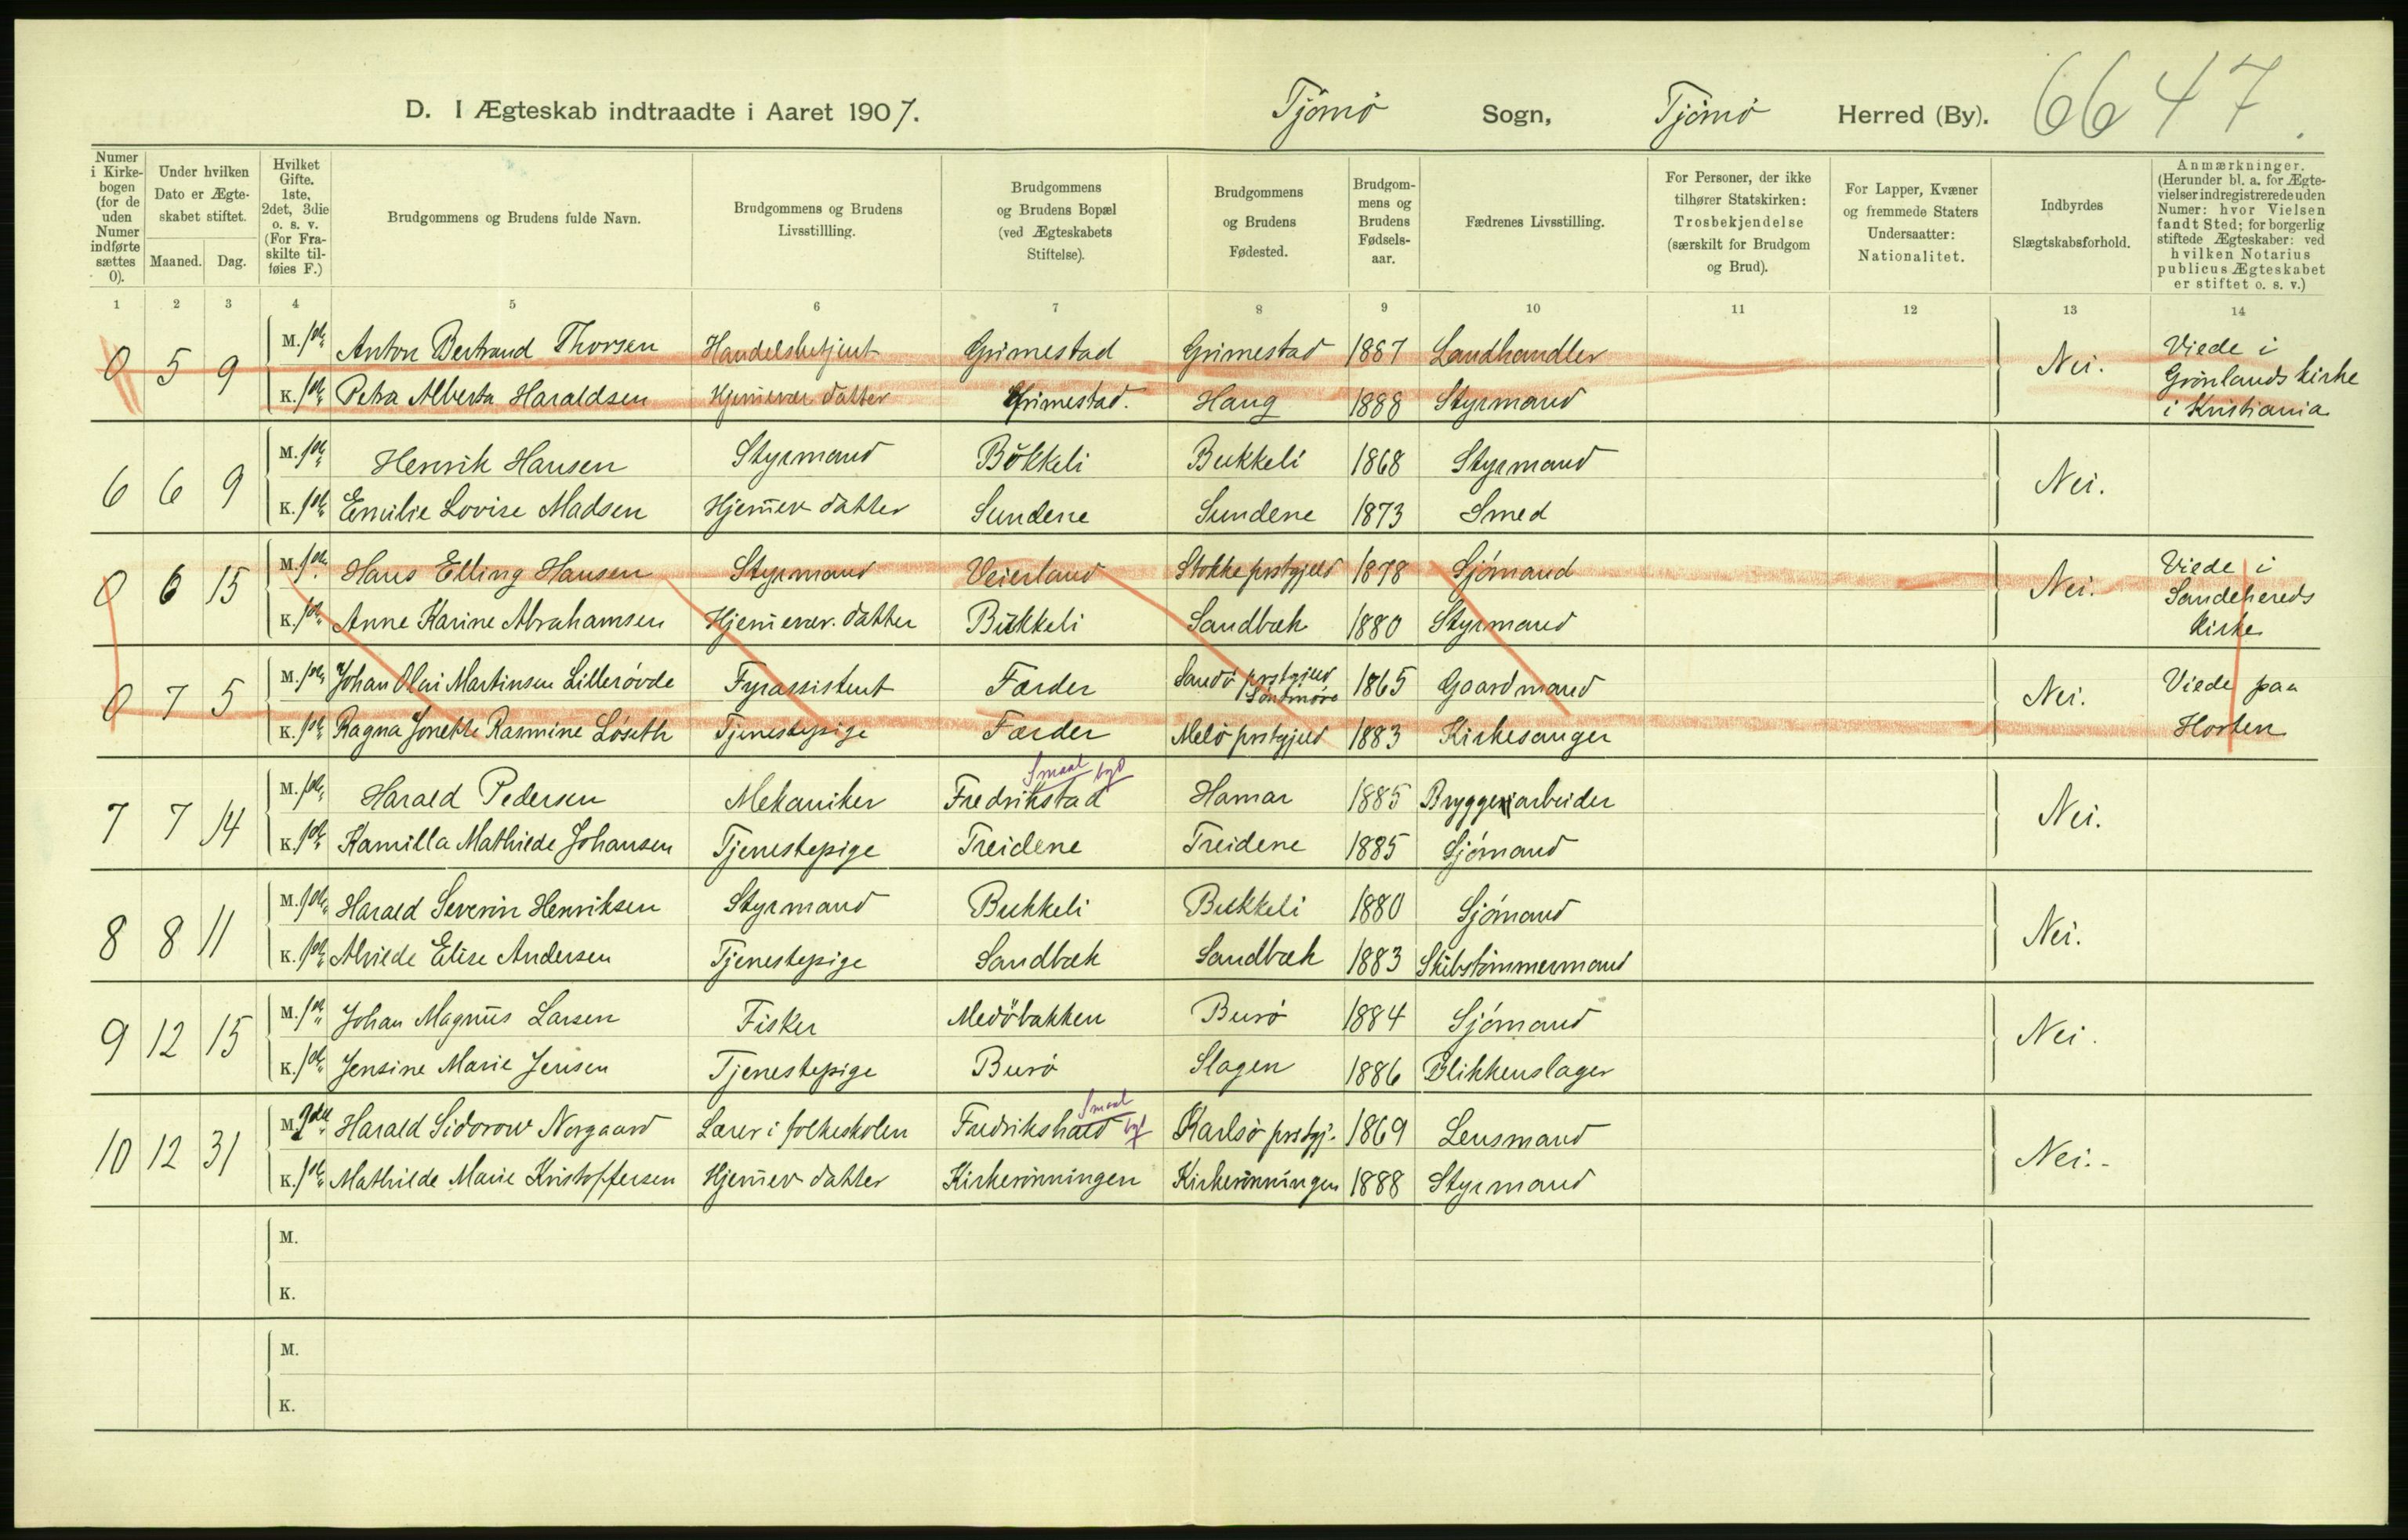 D. I Ægteskab indtraadte i Aaret 1907. Tjømø Sogn, Tjømø Herred (By). 6647
Numer i Kirkebogen (for de uden Numer indførte sættes 0).
Under hvilken Dato er Ægteskabet stiftet.
Maaned. Dag.
Hvilket Gifte. 1ste, 2det, 3die o. s. v. (For Fraskilte tilføies F.)
Brudgommens og Brudens fulde Navn.
Brudgommens og Brudens Livsstillling.
Brudgommens og Brudens Bopæl (ved Ægteskabets Stiftelse).
Brudgommens og Brudens Fødested.
Brudgommens og Brudens Fødselsaar.
Fædrenes Livsstilling.
For Personer, der ikke tilhører Statskirken: Trosbekjendelse (særskilt for Brudgom og Brud).
For Lapper, Kvæner og fremmede Staters Undersaatter: Nationalitet.
Indbyrdes Slægtskabsforhold.
Anmærkninger. (Herunder bl. a. for Ægtevielser indregistrerede uden Numer: hvor Vielsen fandt Sted; for borgerlig stiftede Ægteskaber: ved hvilken Notarius publicus Ægteskabet er stiftet o. s. v.)
1 2 3 4 5 6 7 8 9 10 11 12 13 14
0 5 9 M. 1ste Anton Bertrand Thorsen Handelsbetjent Grimestad Grimestad 1887 Landhandler Nei. Viede i Grønlands kirke i Kristiania
K. 1ste Petra Alberta Haraldsen Hjemmevær. datter Grimestad. Haug 1888 Styrmand
6 6 9 M. 1ste Henrik Hansen Styrmand Bükkeli Bukkeli 1868 Styrmand Nei.
K. 1ste Emilie Lovise Madsen Hjem̄ev datter Sundene Sundene 1873 Smed
0 6 15 M. 1ste Hans Elling Hansen Styrmand Veierland Stokke prstgjeld 1878 Sjømand Nei. Viede i Sandehereds Kirke
K. 1ste Anne Karine Abrahamsen Hjem̄evær. datter Bükkeli Sandbæk 1880 Styrmand
0 7 5 M. 1ste Johan Olai Martinsen Lillerøvde Fyrassistent Færder Sandø prstgjeld Søndmøre 1865 Gaardmand Nei. Viede paa Horten
K. 1ste Ragna Jonette Rasmine Løseth Tjenestepige Færder Melø prstgjeld 1883 Kirkesanger
7 7 14 M. 1ste Harald Pedersen Mekaniker Fredrikstad Smaal bgd Hamar 1885 Bryggeriarbeider Nei.
K. 1ste Kamilla Mathilde Johansen Tjenestepige Treidene Treidene 1885 Sjømand
8 8 11 M. 1ste Harald Severin Henriksen Styrmand Bukkeli Bukkeli 1880 Sjømand Nei.
K. 1ste Alvilde Elise Andersen Tjenestepige Sandbæk Sandbæk 1883 Skibstømmermand
9 12 15 M. 1ste Johan Magnus Larsen Fisker Medøbakken Burø 1884 Sjømand Nei.
K. 1ste Jensine Marie Jensen Tjenestepige Burø Slagen 1886 Blikkenslager
10 12 31 M. 2det Harald Sidorow Norgaard Lærer i folkeskolen Fredrikshald Smaal Karlsø prstgj. 1869 Lensmand Nei.
K. 1ste Mathilde Marie Kristoffersen Hjem̄ev datter Kirkerønningen Kirkerønningen 1888 Styrmand
M.
K.
M.
K.